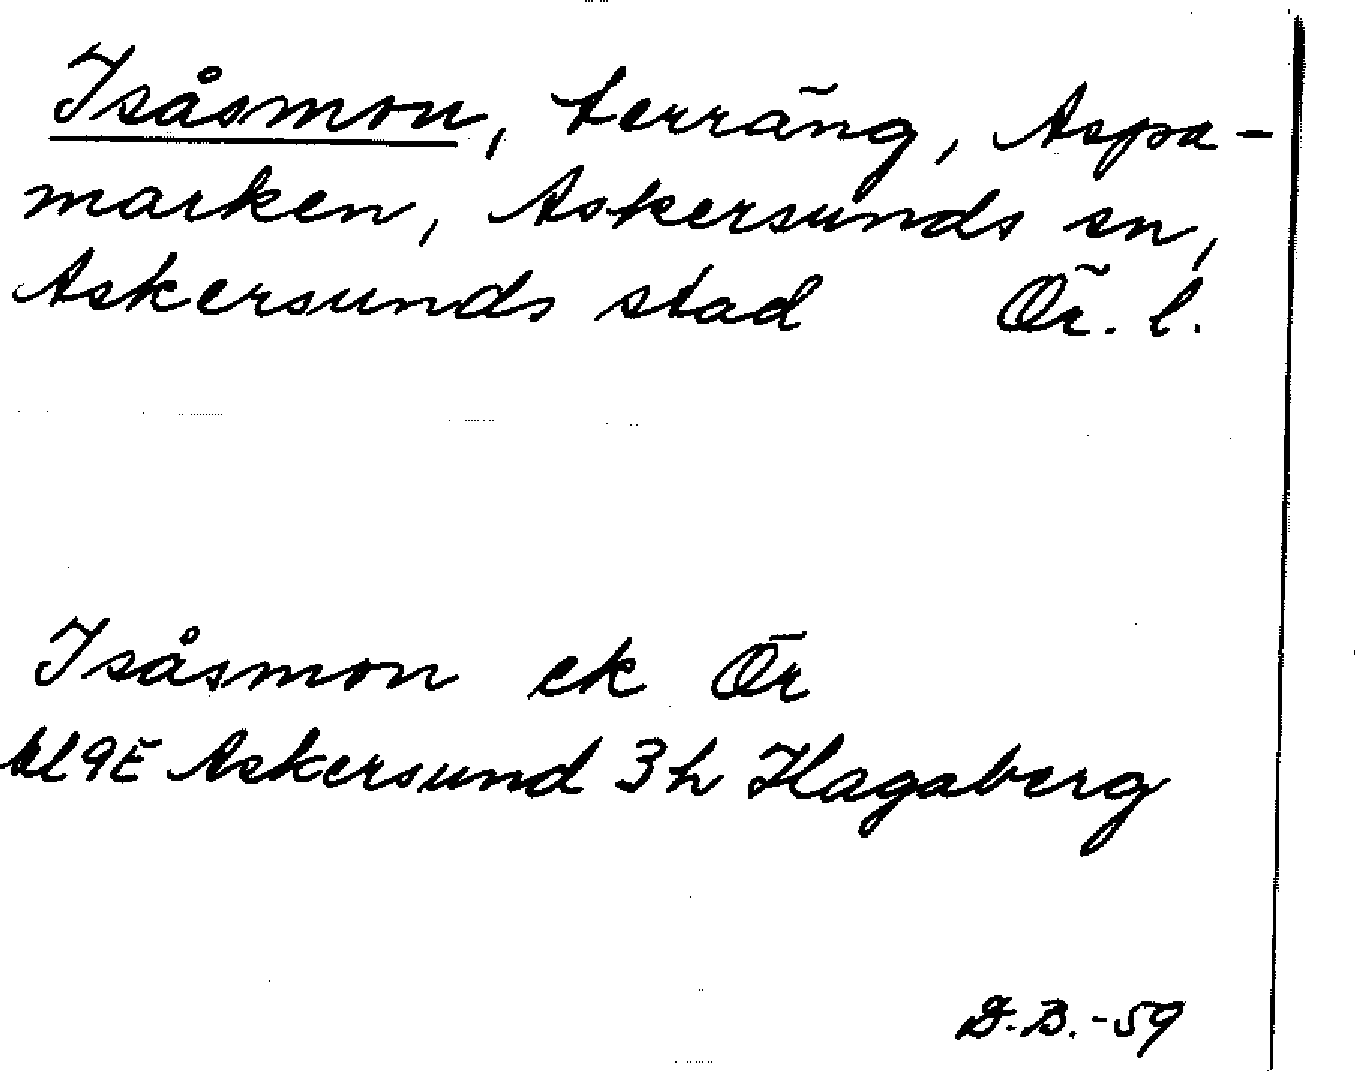 Isåsmon, terräng, Aspa-
marken, Askersunds sn,
Askersunds stad Ör. l.
Isåsmon ek Ör
bl 9E Askersund 3h Hagaberg
D.B. -59